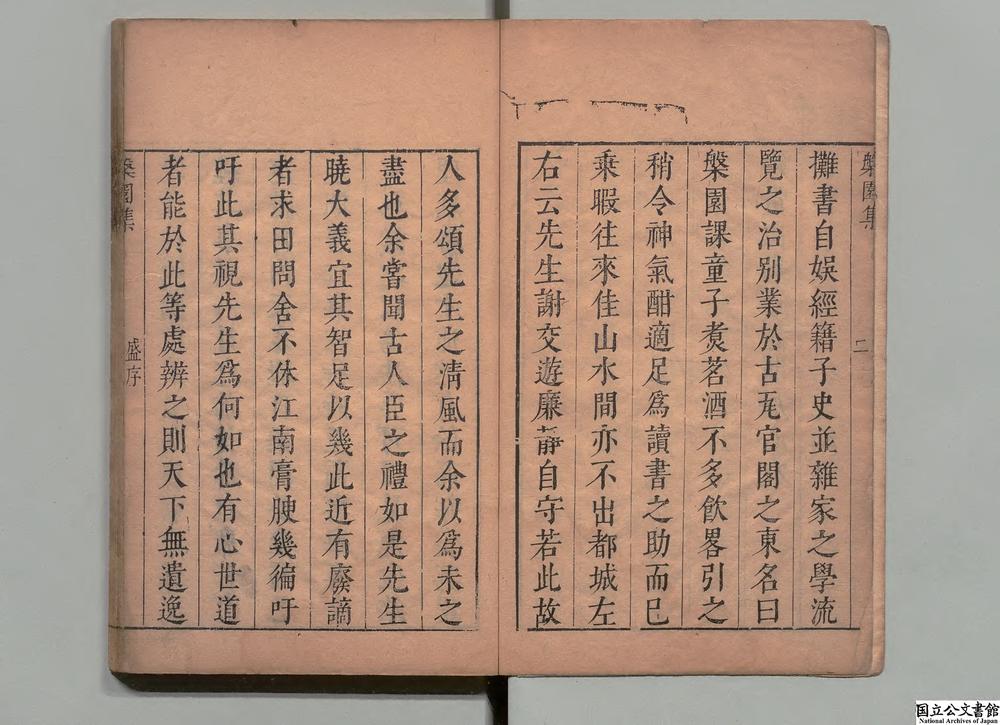 槃園集
二
攤書自娛經籍子史並雜家之學流
覽之治别業於古瓦官閣之東名曰
槃園課童子煑茗酒不多飲畧引之
稍令神氣酣適足爲讀書之助而已
乘暇往來佳山水間亦不出都城左
右云先生謝交遊廉靜自守若此故
人多頌先生之清風而余以爲未之
盡也余嘗聞古人臣之禮如是先生
曉大義宜其智足以幾此近有廢謫
者求田問舍不休江南膏腴幾徧吁
吁此其視先生爲何如也有心世道
者能於此等處辨之則天下無遺逸
槃園集
盛序
国立公文書館
National Archives of Japan